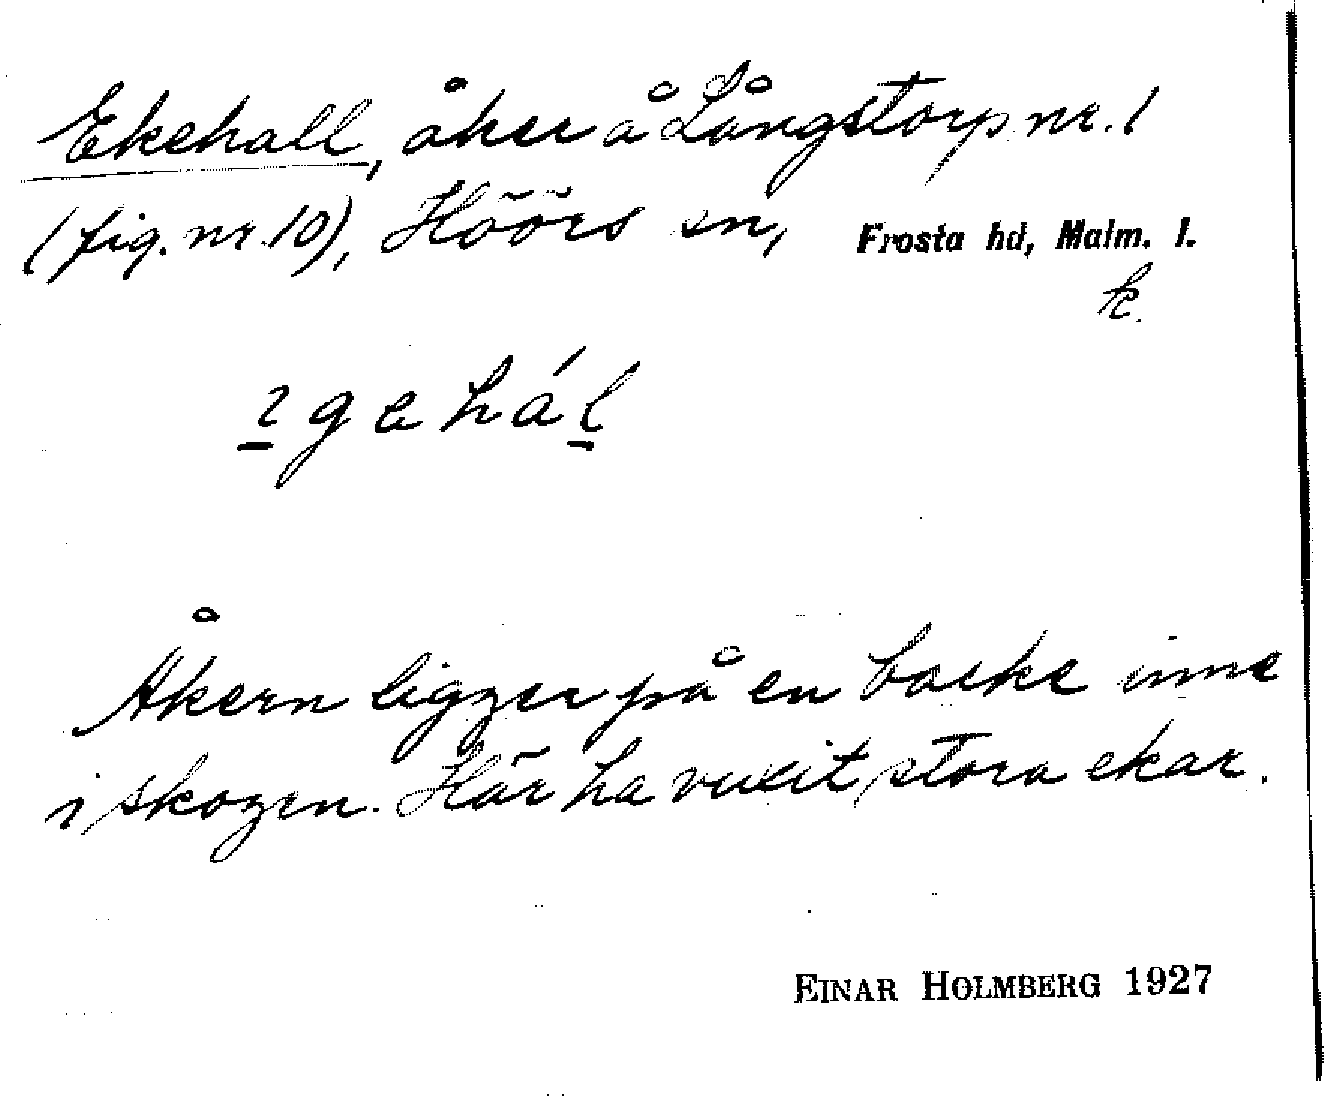 Ekehall, åker å Långstorp nr. 1
(fig. nr 10), Höörs sn, Frosta hd, Malm. l.
k.
ɿgehál
Åkern ligger på en backe inne
i skogen. Här ha vuxit stora ekar.
EINAR HOLMBERG 1927